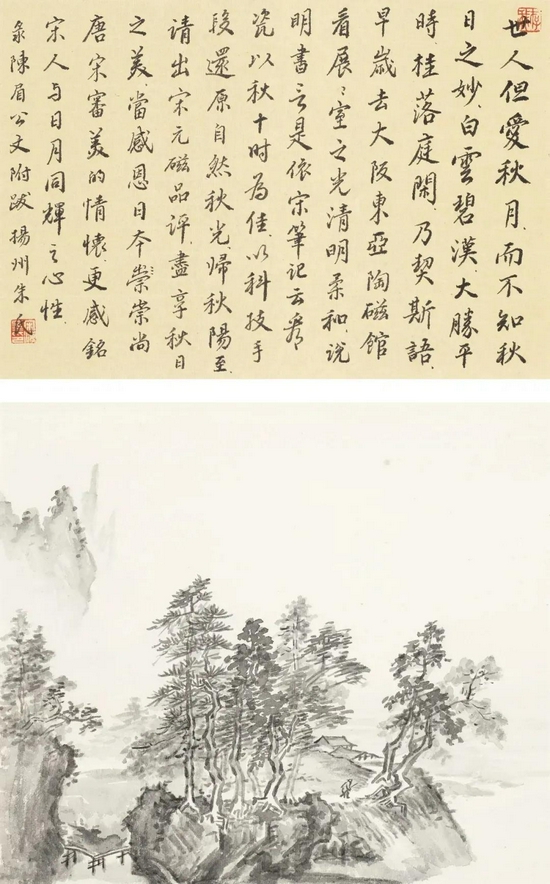 世人但愛秋月而不知秋
日之妙白雲碧漢大勝平
時桂落庭閑乃契斯語
早歲去大阪東亞陶磁館
看展展室之光清明柔和說
明書言是依宋筆記云看
瓷以秋十時為佳以科技手
段還原自然秋光歸秋陽至
請出宋元磁品評盡享秋日
之美當感恩日本崇崇尚
唐宋審美的情懷更感銘
宋人与日月同輝之心性
彔陳眉公文附跋揚州朱